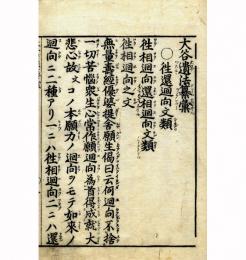 大谷遺法纂彙
〇往還迴向文類
往相迴向還相迴向文類
往相迴向之文
無量壽經優婆提舎願生偈曰云何迴向不捨
一切苦惱衆生心常作願迴向為首得成就大
悲心故文コノ本願力ノ迴向ヲモテ如來ノ
迴向ニ二種アリ一ニハ往相迴向二ニハ還